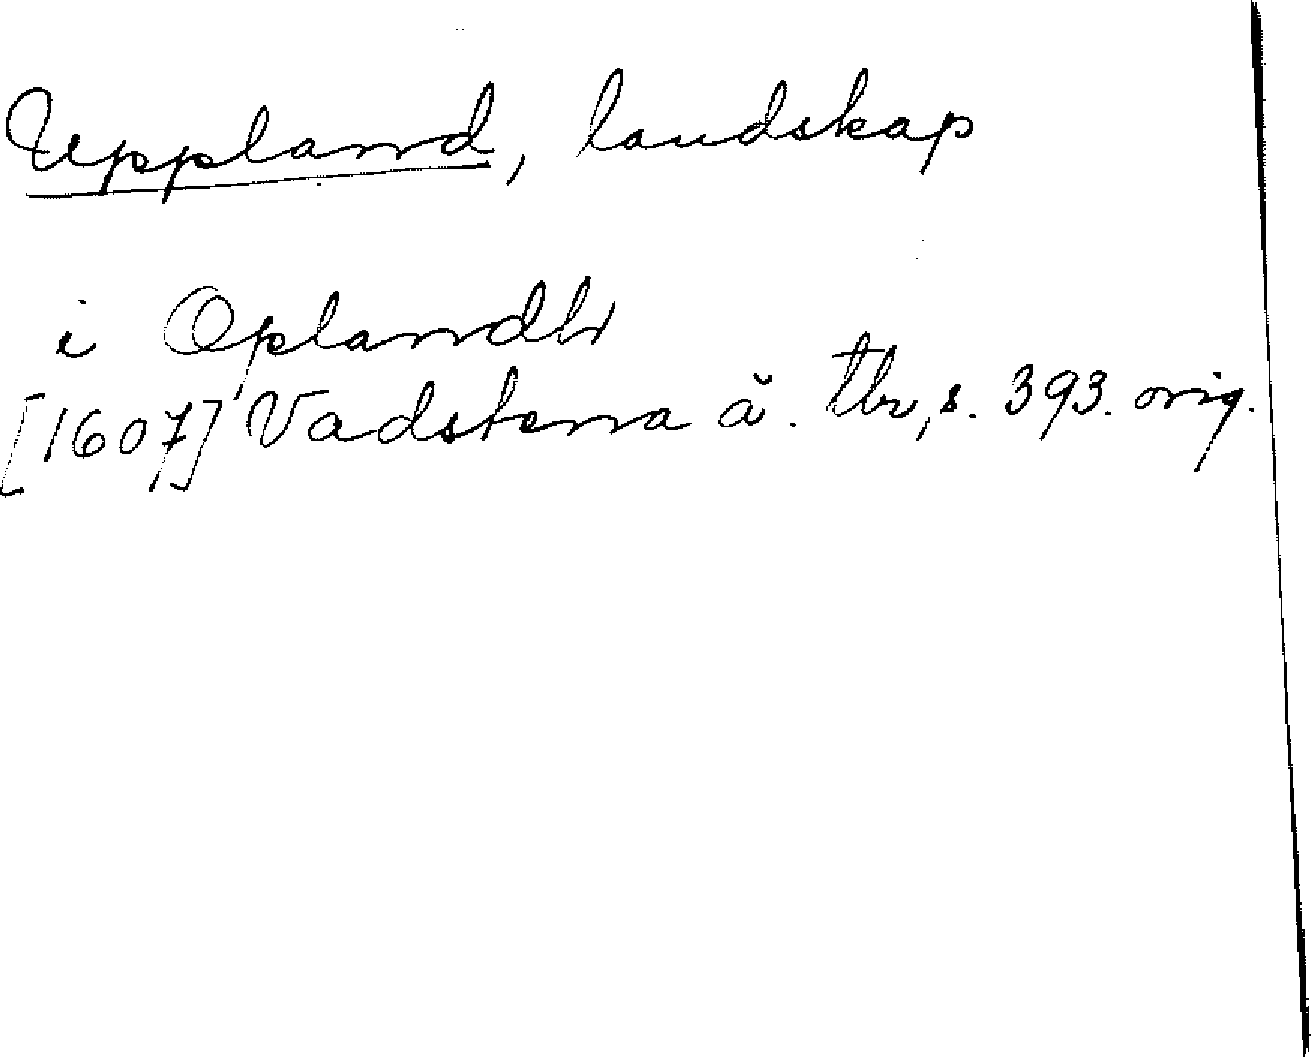 Uppland, landskap
i Oplandh
[1607] Vadstena ä. tbr, s. 393. orig.